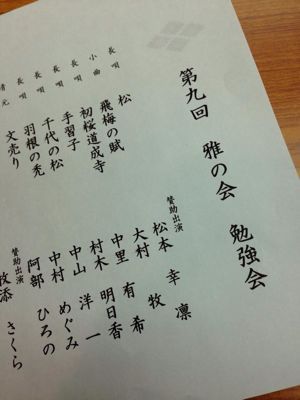 第九回 雅の会 勉強会
長唄 松 賛助出演 松本 幸凛
小曲 飛梅の賦 大村 牧
長唄 初桜道成寺 中里 有希
長唄 手習子 村木 明日香
長唄 千代の松 中山 洋一
長唄 羽根の禿 中村 めぐみ
清元 文売り 阿部 ひろの
賛助出演 牧添 さくら